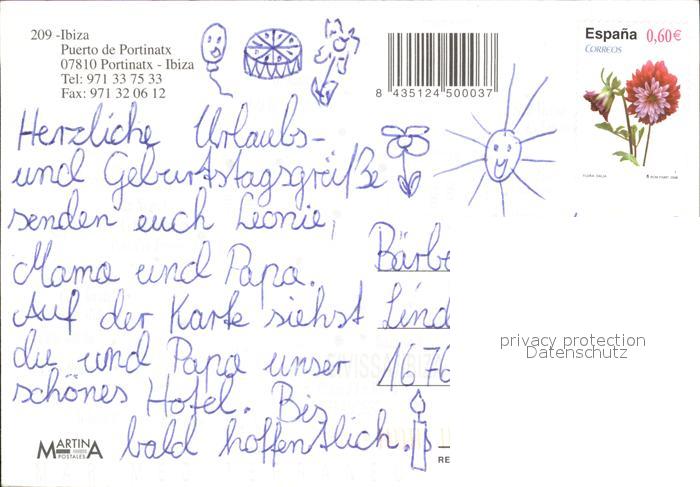 209 -Ibiza
Puerto de Portinatx
07810 Portinatx - Ibiza
Tel: 971 33 75 33
Fax: 971 32 06 12
8 435124 500037
España 0,60€
CORREOS
FLORA. DALIA
Herzliche Urlaubs-
und Geburtstagsgrüße
senden euch Leonie,
Mama und Papa.
Auf der Karte siehst
du und Papa unser
schönes Hotel. Bis
bald hoffentlich.
Bärbe
Lind
1676
privacy protection
Datenschutz
MARTINA
POSTALES
RE